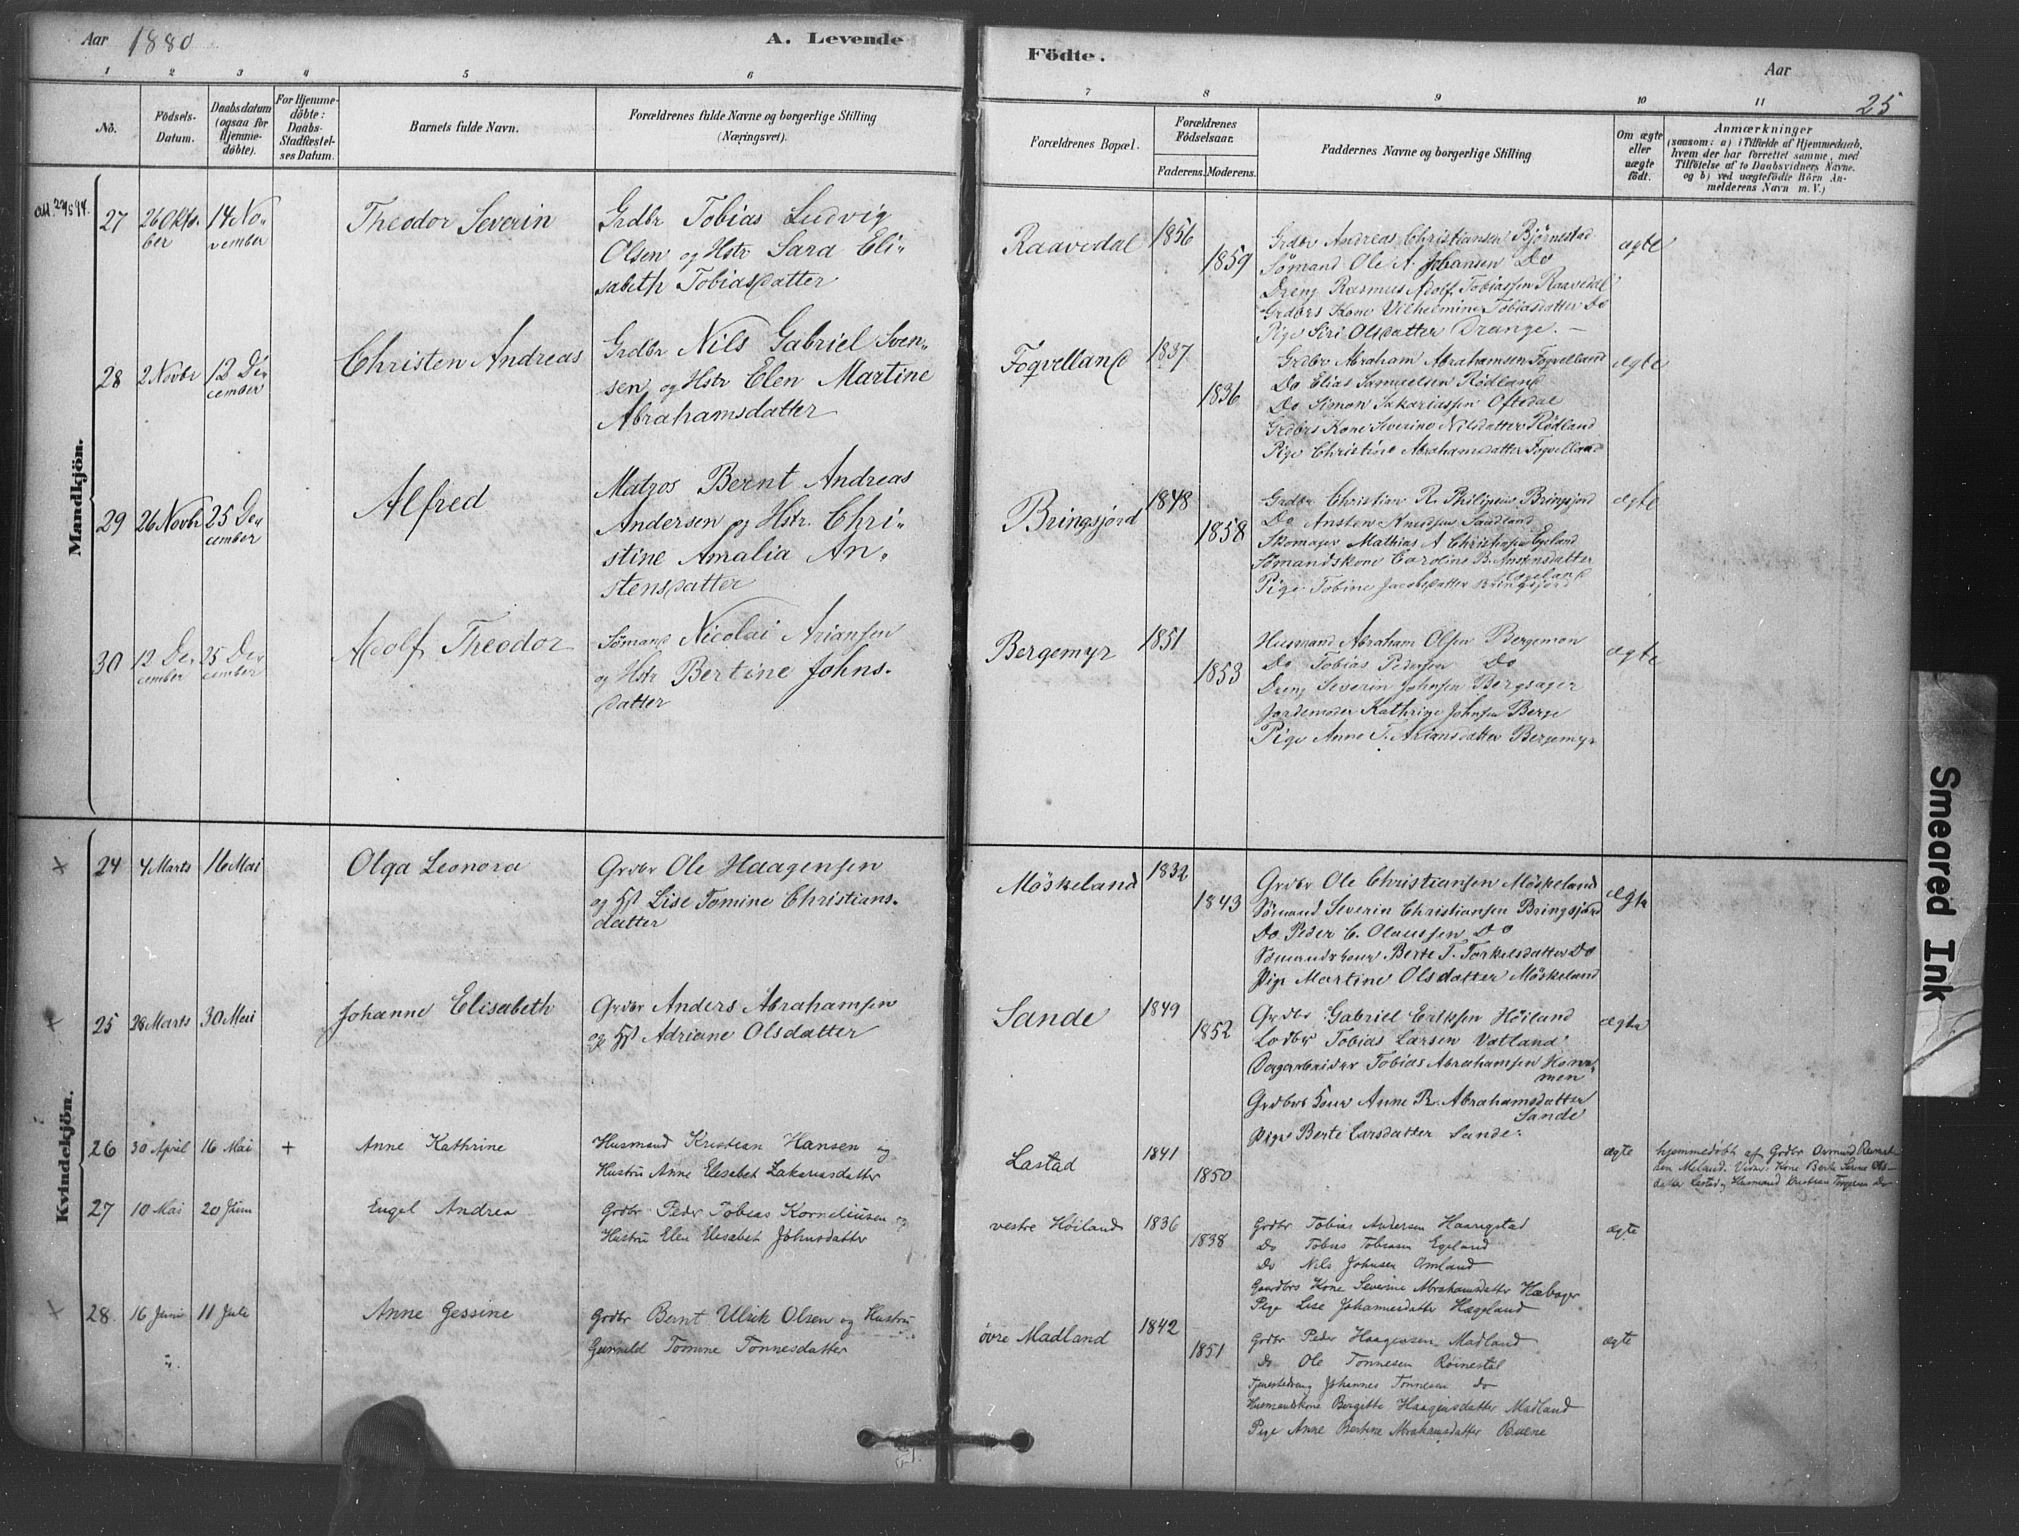 Aar 1880
A. Levende
Födte.
Aar
25
1 2 3 4 5 6 7 8 9 10 11
No.
Födsels-
Datum.
Daabsdatum
(ogsaa for
Hjemme-
döbte).
For Hjemme-
döbte:
Daabs-
Stadfæstel-
ses Datum.
Barnets fulde Navn.
Forældrenes fulde Navne og borgerlige Stilling
(Næringsvei).
Forældrenes Bopæl.
Forældrenes
Födselsaar.
Faderens. Moderens.
Faddernes Navne og borgerlige Stilling
Om ægte
eller
uægte
födt.
Anmærkninger
(saasom: a) i Tilfælde af Hjemmedaab,
hvem der har forrettet samme, med
Tilföielse af to Daabsvidners Navne.
og b) ved uægtefödte Börn An-
melderens Navn m. V.)
Mandkjön.
27 26 Okto-
ber
14 No-
vember
Theodor Severin
Grdbr Tobias Ludvig
Olsen og Hstr Sara Eli-
sabeth Tobiasdatter
Raavedal
1856
1859
Grdbr Andreas Christiansen Bjørnestad
Sømand Ole A. Johansen Do
Dreng Rasmus Adolf Tobiassen Raavedal
Grdbrs Kone Vilhelmine Tobiasdatter Do
Pige Siri Olsdatter Drange. –
ægte
28 2 Novbr 12 De-
cember
Christen Andreas
Grdbr Nils Gabriel Sven-
sen og Hstr Elen Martine
Abrahamsdatter
Fogvelland
1837
1836
Grdbr Abraham Abrahamsen Fogvelland
Do Elias Samuelsen Rödland
Do Simon Sakariassen Oftedal
Grdbrs Kone Severine Nilsdatter Rödland
Pige Christine Abrahamsdatter Fogvelland
ægte
29 26 Novbr 25 De-
cember
Alfred
Matros Bernt Andreas
Andersen og Hstr. Chri-
stine Amalia An-
stensdatter
Bringsjord
1848
1858
Grdbr Christian R. Philipsen Bringsjord
Do Ansten Knudsen Sandland
Skomager Mathias A Christensen Egeland
Sømandskone Caroline B. Andersdatter
Egeland
Pige Tobine Jacobsdatter Bringsjord
ægte
30 12 De-
cember
25 De-
cember
Adolf Theodor
Sømand Nicolai Ariansen
og Hstr Bertine Johns-
datter
Bergemyr
1851
1853
Husmand Abraham Olsen Bergemon
Do Tobias Pedersen Do
Dreng Severin Johnsen Bergsager
Jordemoder Kathrine Johnsen Berge
Pige Anne T. Ariansdatter Bergemyr
ægte
Kvindekjön.
24 4 Marts 16 Mai
Olga Leonora
Grdbr Ole Haagensen
og Hst Lise Tomine Christians-
datter
Möskeland
1832
1843
Grdbr Ole Christiansen Möskeland
Sömand Severin Christiansen Bringsjord
Do Peder C. Olaussen Do
Sömandskone Berte T. Torkelsdatter Do
Pige Martine Olsdatter Möskeland
ægte
25 28 Marts 30 Mai
Johanne Elisabeth
Grdbr Anders Abrahamsen
og Hst Adriane Olsdatter
Sande
1849
1852
Grdbr Gabriel Eriksen Höiland
Lodbr Tobias Larsen Vatland
Dagarbeider Tobias Abrahamsen Kom-
men
Grdbrs Kone Anne R. Abrahamsdatter
Sande
Pige Berte Larsdatter Sande.
ægte
26 30 April 16 Mai +
Anne Kathrine
Husmand Kristian Hansen og
Hustru Anne Elisabet Zakariasdatter
Lastad
1841
1850
ægte
hjemmedöbt af Grdbr
27 10 Mai 20 Juni
Engel Andrea
Grdbr Peder Tobias Korneliusen og
Hustru Elen Elisabet Johnsdatter
vestre Höiland
1836
1838
Grdbr Tobias Andersen Haarigstad
Do Tobias Tobiasen Egeland
Do Nils Johnsen Omland
Gaardbrs Kone Severine Abrahamsdatter Hæbager
Pige Lise Johannesdatter Hægeland
ægte
28 16 Juni 11 Juli
Anne Gessine
Grdbr Bernt Ulrik Olsen og Hustru
Gunnild Tomine Tonnesdatter
övre Madland
1842
1851
Grdbr Peder Haagensen Madland
Do Ole Tonnesen Röinestal
Tjenestedreng Johannes Tonnesen do
Husmandskone Bergitte Haagensdatter Madland
Pige Anne Bertine Abrahamsdatter Bruene
ægte
Smeared Ink